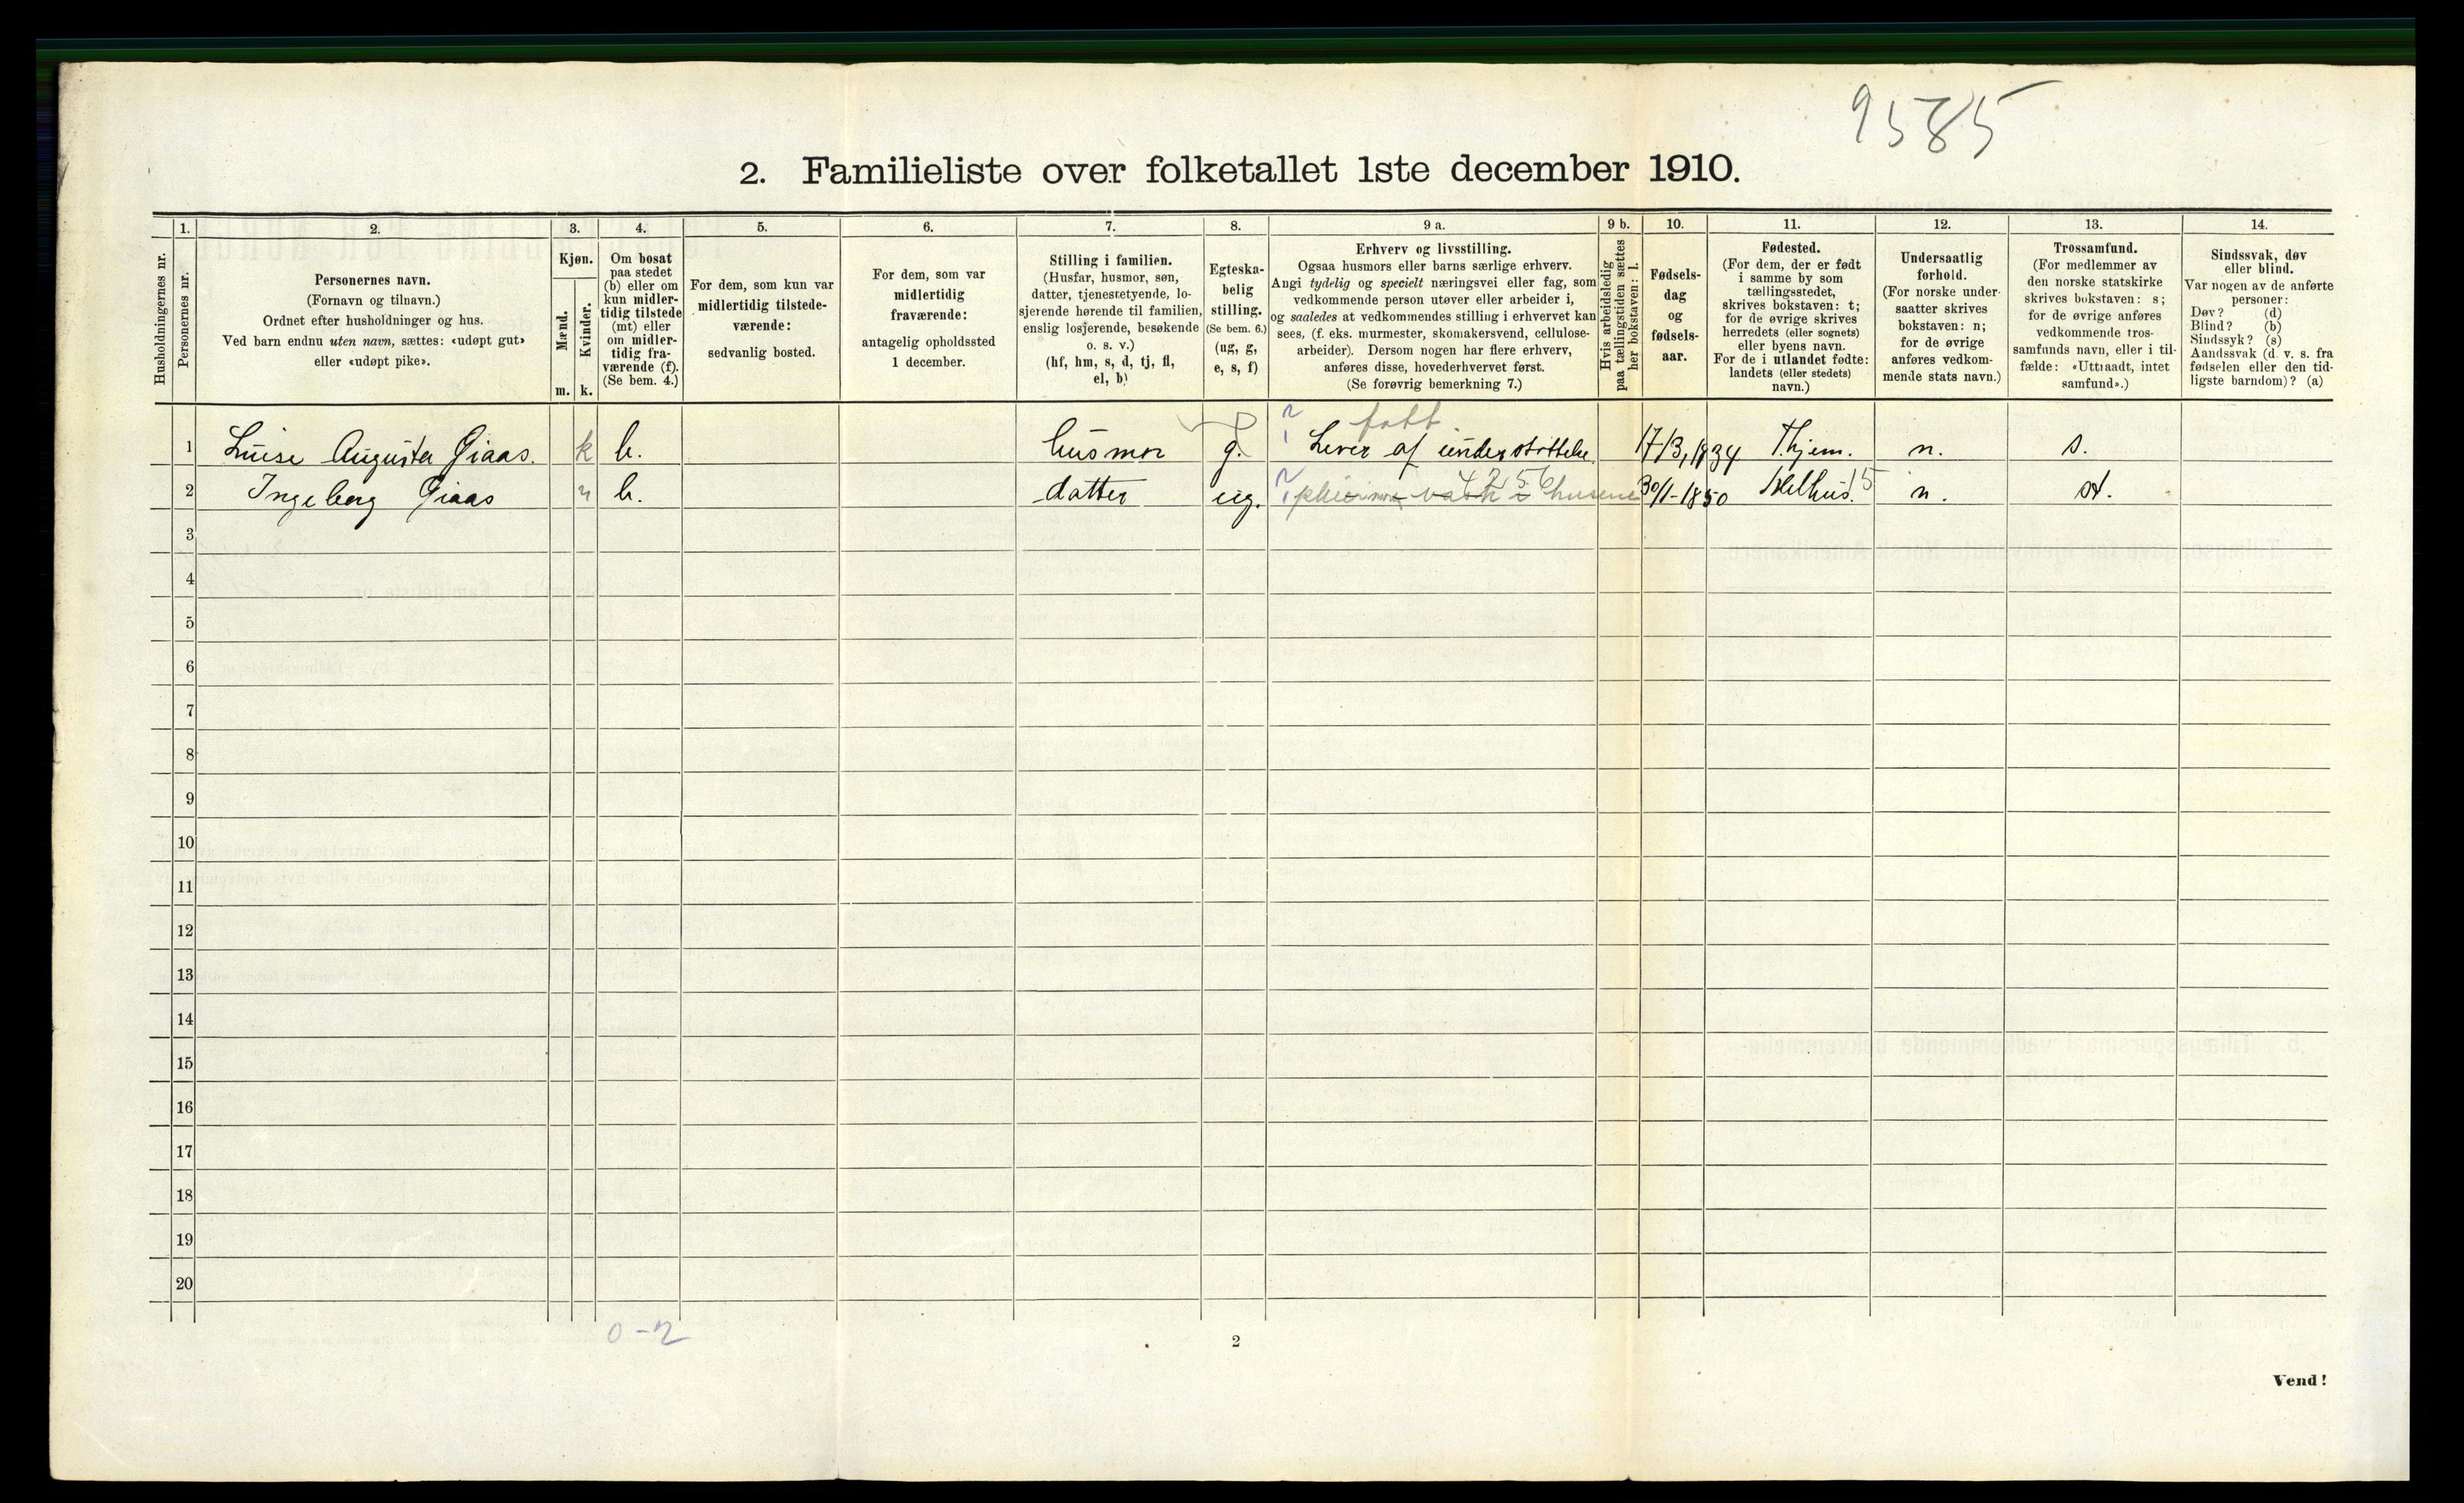 9585
2. Familieliste over folketallet 1ste december 1910.
1. 2. 3. 4. 5. 6. 7. 8. 9 a. 9 b. 10. 11. 12. 13. 14.
Husholdningernes nr.
Personernes nr.
Personernes navn.
(Fornavn og tilnavn.)
Ordnet efter husholdninger og hus.
Ved barn endnu uten navn, sættes: «udøpt gut»
eller «udøpt pike».
Kjøn.
Mænd.
Kvinder.
m. k.
Om bosat
paa stedet
(b) eller om
kun midler-
tidig tilstede
(mt) eller
om midler-
tidig fra-
værende (f).
(Se bem. 4.)
For dem, som kun var
midlertidig tilstede-
værende:
sedvanlig bosted.
For dem, som var
midlertidig
fraværende:
antagelig opholdssted
1 december.
Stilling i familien.
(Husfar, husmor, søn,
datter, tjenestetyende, lo-
sjerende hørende til familien,
enslig losjerende, besøkende
o. s. v.)
(hf, hm, s, d, tj, fl,
el, b)
Egteska-
belig
stilling.
(Se bem. 6.)
(ug, g,
e, s, f)
Erhverv og livsstilling.
Ogsaa husmors eller barns særlige erhverv.
Angi tydelig og specielt næringsvei eller fag, som
vedkommende person utøver eller arbeider i,
og saaledes at vedkommendes stilling i erhvervet kan
sees, (f. eks. murmester, skomakersvend, cellulose-
arbeider). Dersom nogen har flere erhverv,
anføres disse, hovederhvervet først.
(Se forøvrig bemerkning 7.)
Hvis arbeidsledig
paa tællingstiden sættes
her bokstaven: l.
Fødsels-
dag
og
fødsels-
aar.
Fødested.
(For dem, der er født
i samme by som
tællingsstedet,
skrives bokstaven: t;
for de øvrige skrives
herredets (eller sognets)
eller byens navn.
For de i utlandet fødte:
landets (eller stedets)
navn.)
Undersaatlig
forhold.
(For norske under-
saatter skrives
bokstaven: n;
for de øvrige
anføres vedkom-
mende stats navn.)
Trossamfund.
(For medlemmer av
den norske statskirke
skrives bokstaven: s;
for de øvrige anføres
vedkommende tros-
samfunds navn, eller i til-
fælde: «Uttraadt, intet
samfund».)
Sindssvak, døv
eller blind.
Var nogen av de anførte
personer:
Døv? (d)
Blind? (b)
Sindssyk? (s)
Aandssvak (d. v. s. fra
fødselen eller den tid-
ligste barndom)? (a)
1 Luise Augusta Giaas. k b. husmor g. Lever af understøttelse 17/3,1834 Thjem. n. s.
2 Ingeborg Giaas b. datter ug. 30/1-1850 Melhus. n. st.
3
4
5
6
7
8
9
10
11
12
13
14
15
16
17
18
19
20
0-2
2
Vend!